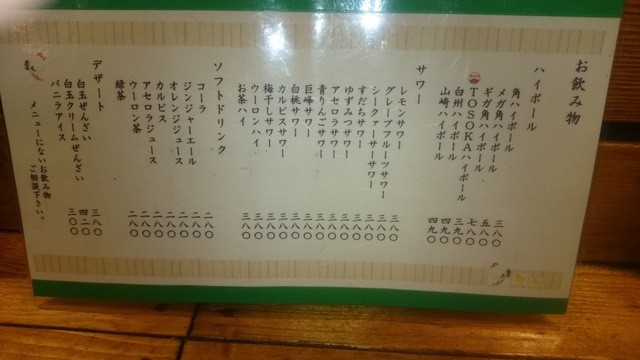 お飲み物
ハイボール
角ハイボール 三八〇
メガ角ハイボール 五八〇
ギガ角ハイボール 七八〇
TOSOKAハイボール 三九〇
白州ハイボール 四九〇
山崎ハイボール 四九〇
サワー
レモンサワー 三八〇
グレープフルーツサワー 三八〇
シークァーサーサワー 三八〇
すだちサワー 三八〇
ゆずみつサワー 三八〇
アセロラサワー 三八〇
青りんごサワー 三八〇
巨峰サワー 三八〇
白桃サワー 三八〇
カルピスサワー 三八〇
梅干しサワー 三八〇
ウーロンハイ 三八〇
お茶ハイ 三八〇
ソフトドリンク
コーラ 二八〇
ジンジャーエール 二八〇
オレンジジュース 二八〇
カルピス 二八〇
アセロラジュース 二八〇
ウーロン茶 二八〇
緑茶 二八〇
デザート
白玉ぜんざい 三八〇
白玉クリームぜんざい 四二〇
バニラアイス 三〇〇
メニューにないお飲み物
ご相談下さい。